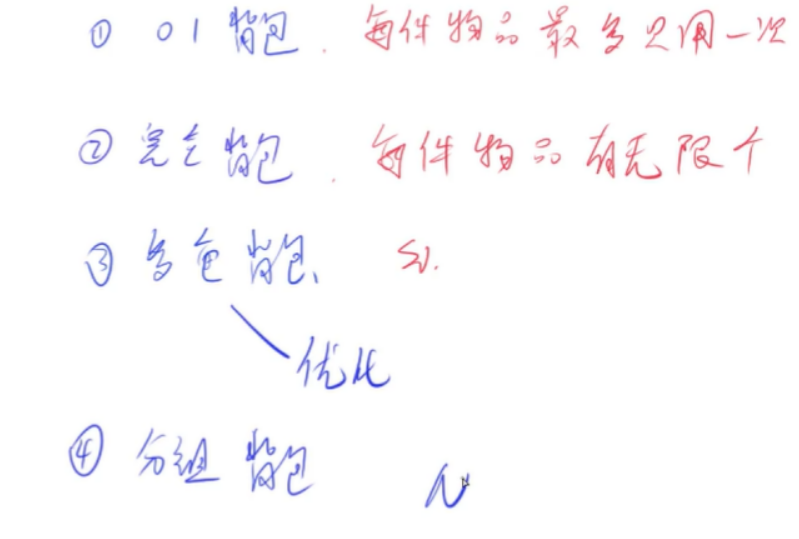 ① 01背包. 每件物品最多只用一次
② 完全背包. 每件物品有无限个
③ 多重背包、 Si.
优化
④ 分组背包 N